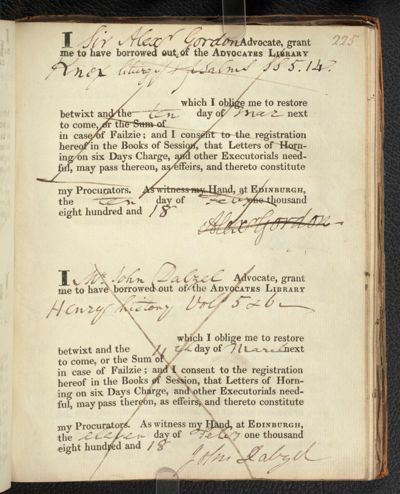 225
I Sir Alexr Gordon Advocate, grant
me to have borrowed out of the ADVOCATES LIBRARY
Knox liturgy & psalms
which I oblige me to restore
betwixt and the ten day of Mar next
to come, or the Sum of
in case of Failzie; and I consent to the registration
hereof in the Books of Session, that Letters of Horn-
ing on six Days Charge, and other Executorials need-
ful, may pass thereon, as effeirs, and thereto constitute
my Procurators. As witness my Hand, at EDINBURGH,
the ten day of Feby one thousand
eight hundred and 18
Alexr Gordon
I Mr John Dalzel Advocate, grant
me to have borrowed out of the ADVOCATES LIBRARY
Henrys history Vol 5 & 6
which I oblige me to restore
betwixt and the 11th day of March next
to come, or the Sum of
in case of Failzie; and I consent to the registration
hereof in the Books of Session, that Letters of Horn-
ing on six Days Charge, and other Executorials need-
ful, may pass thereon, as effeirs, and thereto constitute
my Procurators. As witness my Hand, at EDINBURGH,
the eleven day of Feby one thousand
eight hundred and 18
John Dalzel